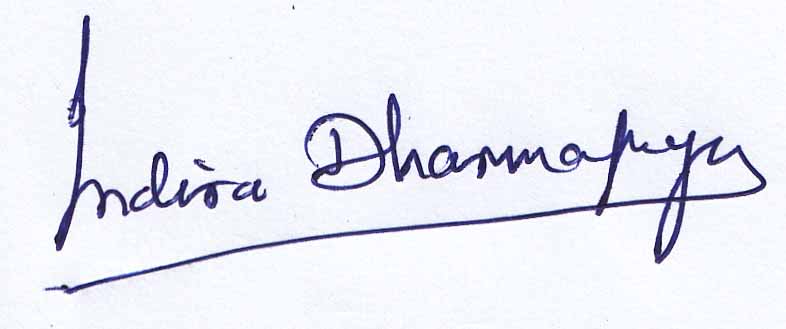 Indira Dharmapriya